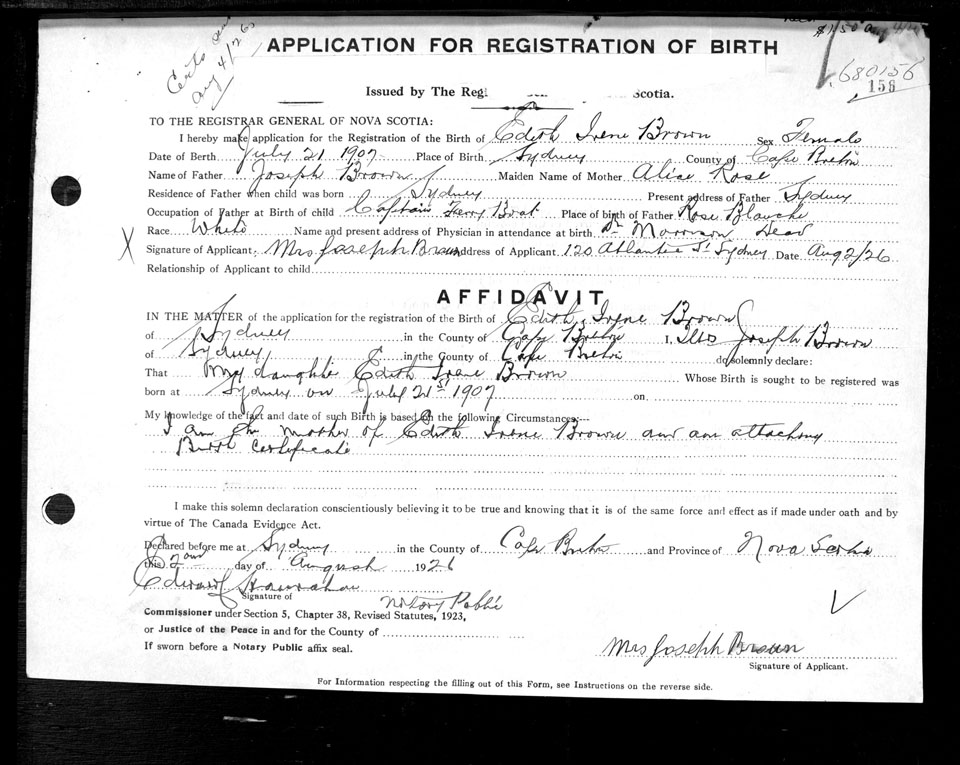 Certs
Aug 4/26
$1.50 Aug 4/
680156
156
APPLICATION FOR REGISTRATION OF BIRTH
Issued by The Regi Scotia.
TO THE REGISTRAR GENERAL OF NOVA SCOTIA:
I hereby make application for the Registration of the Birth of Edith Irene Brown Sex Female
Date of Birth July 21 1907 Place of Birth Sydney County of Cape Breton
Name of Father Joseph Brown Maiden Name of Mother Alice Rose
Residence of Father when child was born Sydney Present address of Father Sydney
Occupation of Father at Birth of child Captain Ferry Boat Place of birth of Father Rose Blanche
Race White Name and present address of Physician in attendance at birth Dr Morrison Dead
X Signature of Applicant Mrs Joseph Brown Address of Applicant 120 Atlantic St Sydney Date Aug 2/26
Relationship of Applicant to child
AFFIDAVIT
IN THE MATTER of the application for the registration of the Birth of Edith Irene Brown
of Sydney in the County of Cape Breton I, Mrs Joseph Brown
of Sydney in the County of Cape Breton do solemnly declare:
That My daughter Edith Irene Brown Whose Birth is sought to be registered was
born at Sydney on July 21st 1907 on
My knowledge of the fact and date of such Birth is based on the following Circumstances:--
I am the mother of Edith Irene Brown and am attaching
Birth Certificate
I make this solemn declaration conscientiously believing it to be true and knowing that it is of the same force and effect as if made under oath and by
virtue of The Canada Evidence Act.
Declared before me at Sydney in the County of Cape Breton and Province of Nova Scotia
this 2nd day of August 1926
Edward Hanrahan
Signature of
Notary Public
Commissioner under Section 5, Chapter 38, Revised Statutes, 1923,
or Justice of the Peace in and for the County of
If sworn before a Notary Public affix seal.
Mrs Joseph Brown
Signature of Applicant.
For Information respecting the filling out of this Form, see Instructions on the reverse side.